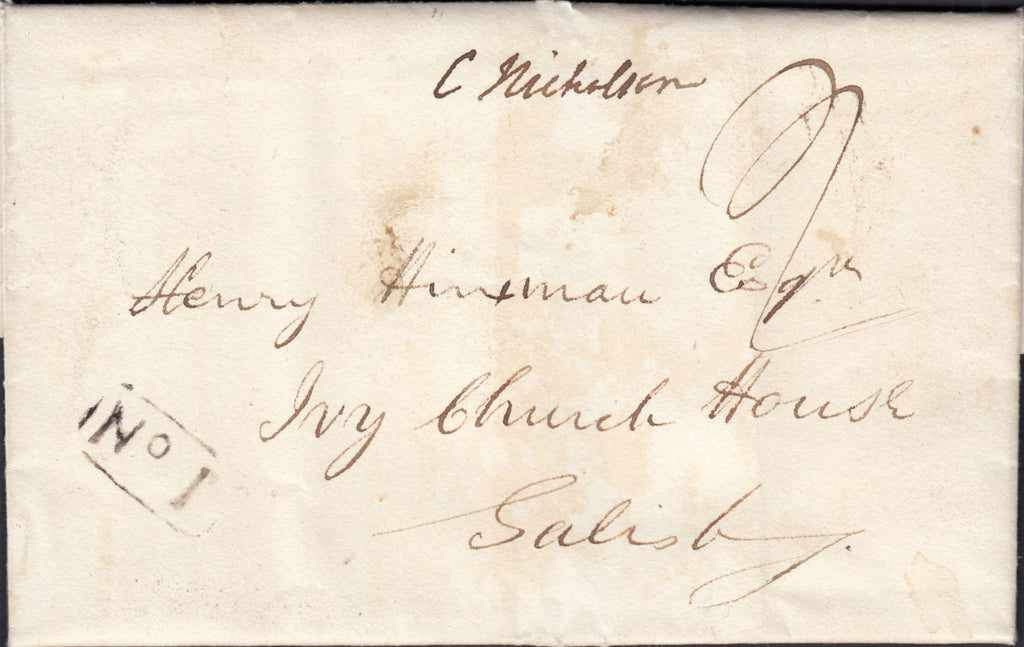 C Nicholson
Henry Hinxman Esqr
Ivy Church House
No 1
Salisby.